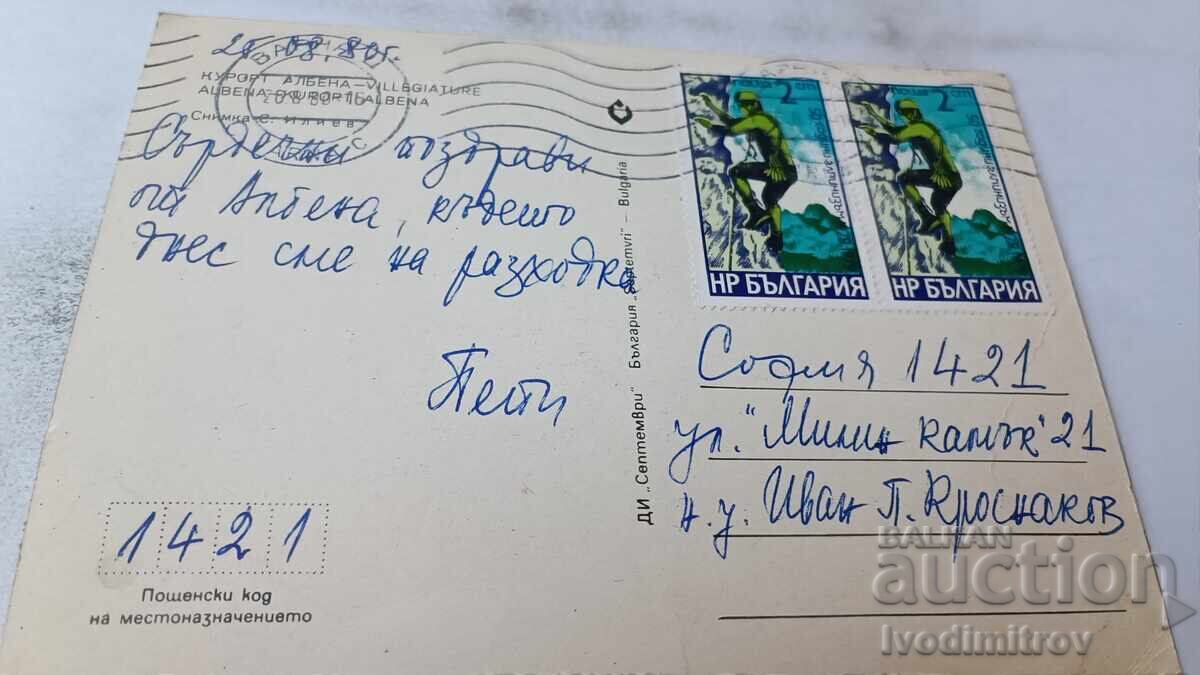 08.80г.
КУРОРТ АЛБЕНА – VILLÉGIATURE
ALBENA – KURORT ALBENA
Снимка С. Илиев
Сърдечни поздрави
от Албена, където
днес сме на разходка
Пети
1421
Пощенски код
на местоназначението
ДИ „Септември“ България „Septemvri“ – Bulgaria
2 ст
НР БЪЛГАРИЯ
2 ст
НР БЪЛГАРИЯ
София 1421
ул. "Милин камък" 21
Иван П.
BALKAN
auction
Ivodimitrov